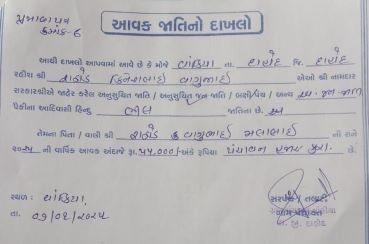 પ્રમાણપત્ર
ક્રમાંક-6
આવક જાતિનો દાખલો
આથી દાખલો આપવામાં આવે છે કે મોજે વાંદરિયા તા. દાહોદ જિ. દાહોદ
રહીશ શ્રી રાઠોડ દિનેશભાઈ વાલુભાઈ એઓ શ્રી નામદાર
સરકારશ્રીએ જાહેર કરેલ અનુસુચિત જાતિ / અનુસુચિત જન જાતિ / બક્ષીપંચ / અન્ય અનુ.જન.જાતિ
પૈકીના આદિવાસી હિન્દુ ભીલ જાતિના છે.
તેમના પિતા / વાલી શ્રી રાઠોડ વાલુભાઈ મલાભાઈ ની સને
૨૦૨૫ ની વાર્ષિક આવક અંદાજે રૂા. ૫૫,૦૦૦/- અંકે રૂપિયા પંચાવન હજાર પુરા. છે.
સ્થળ :
તા. ૦૧/૦૧/૨૦૨૫
સરપંચ / તલાટી
જી. દાહોદ